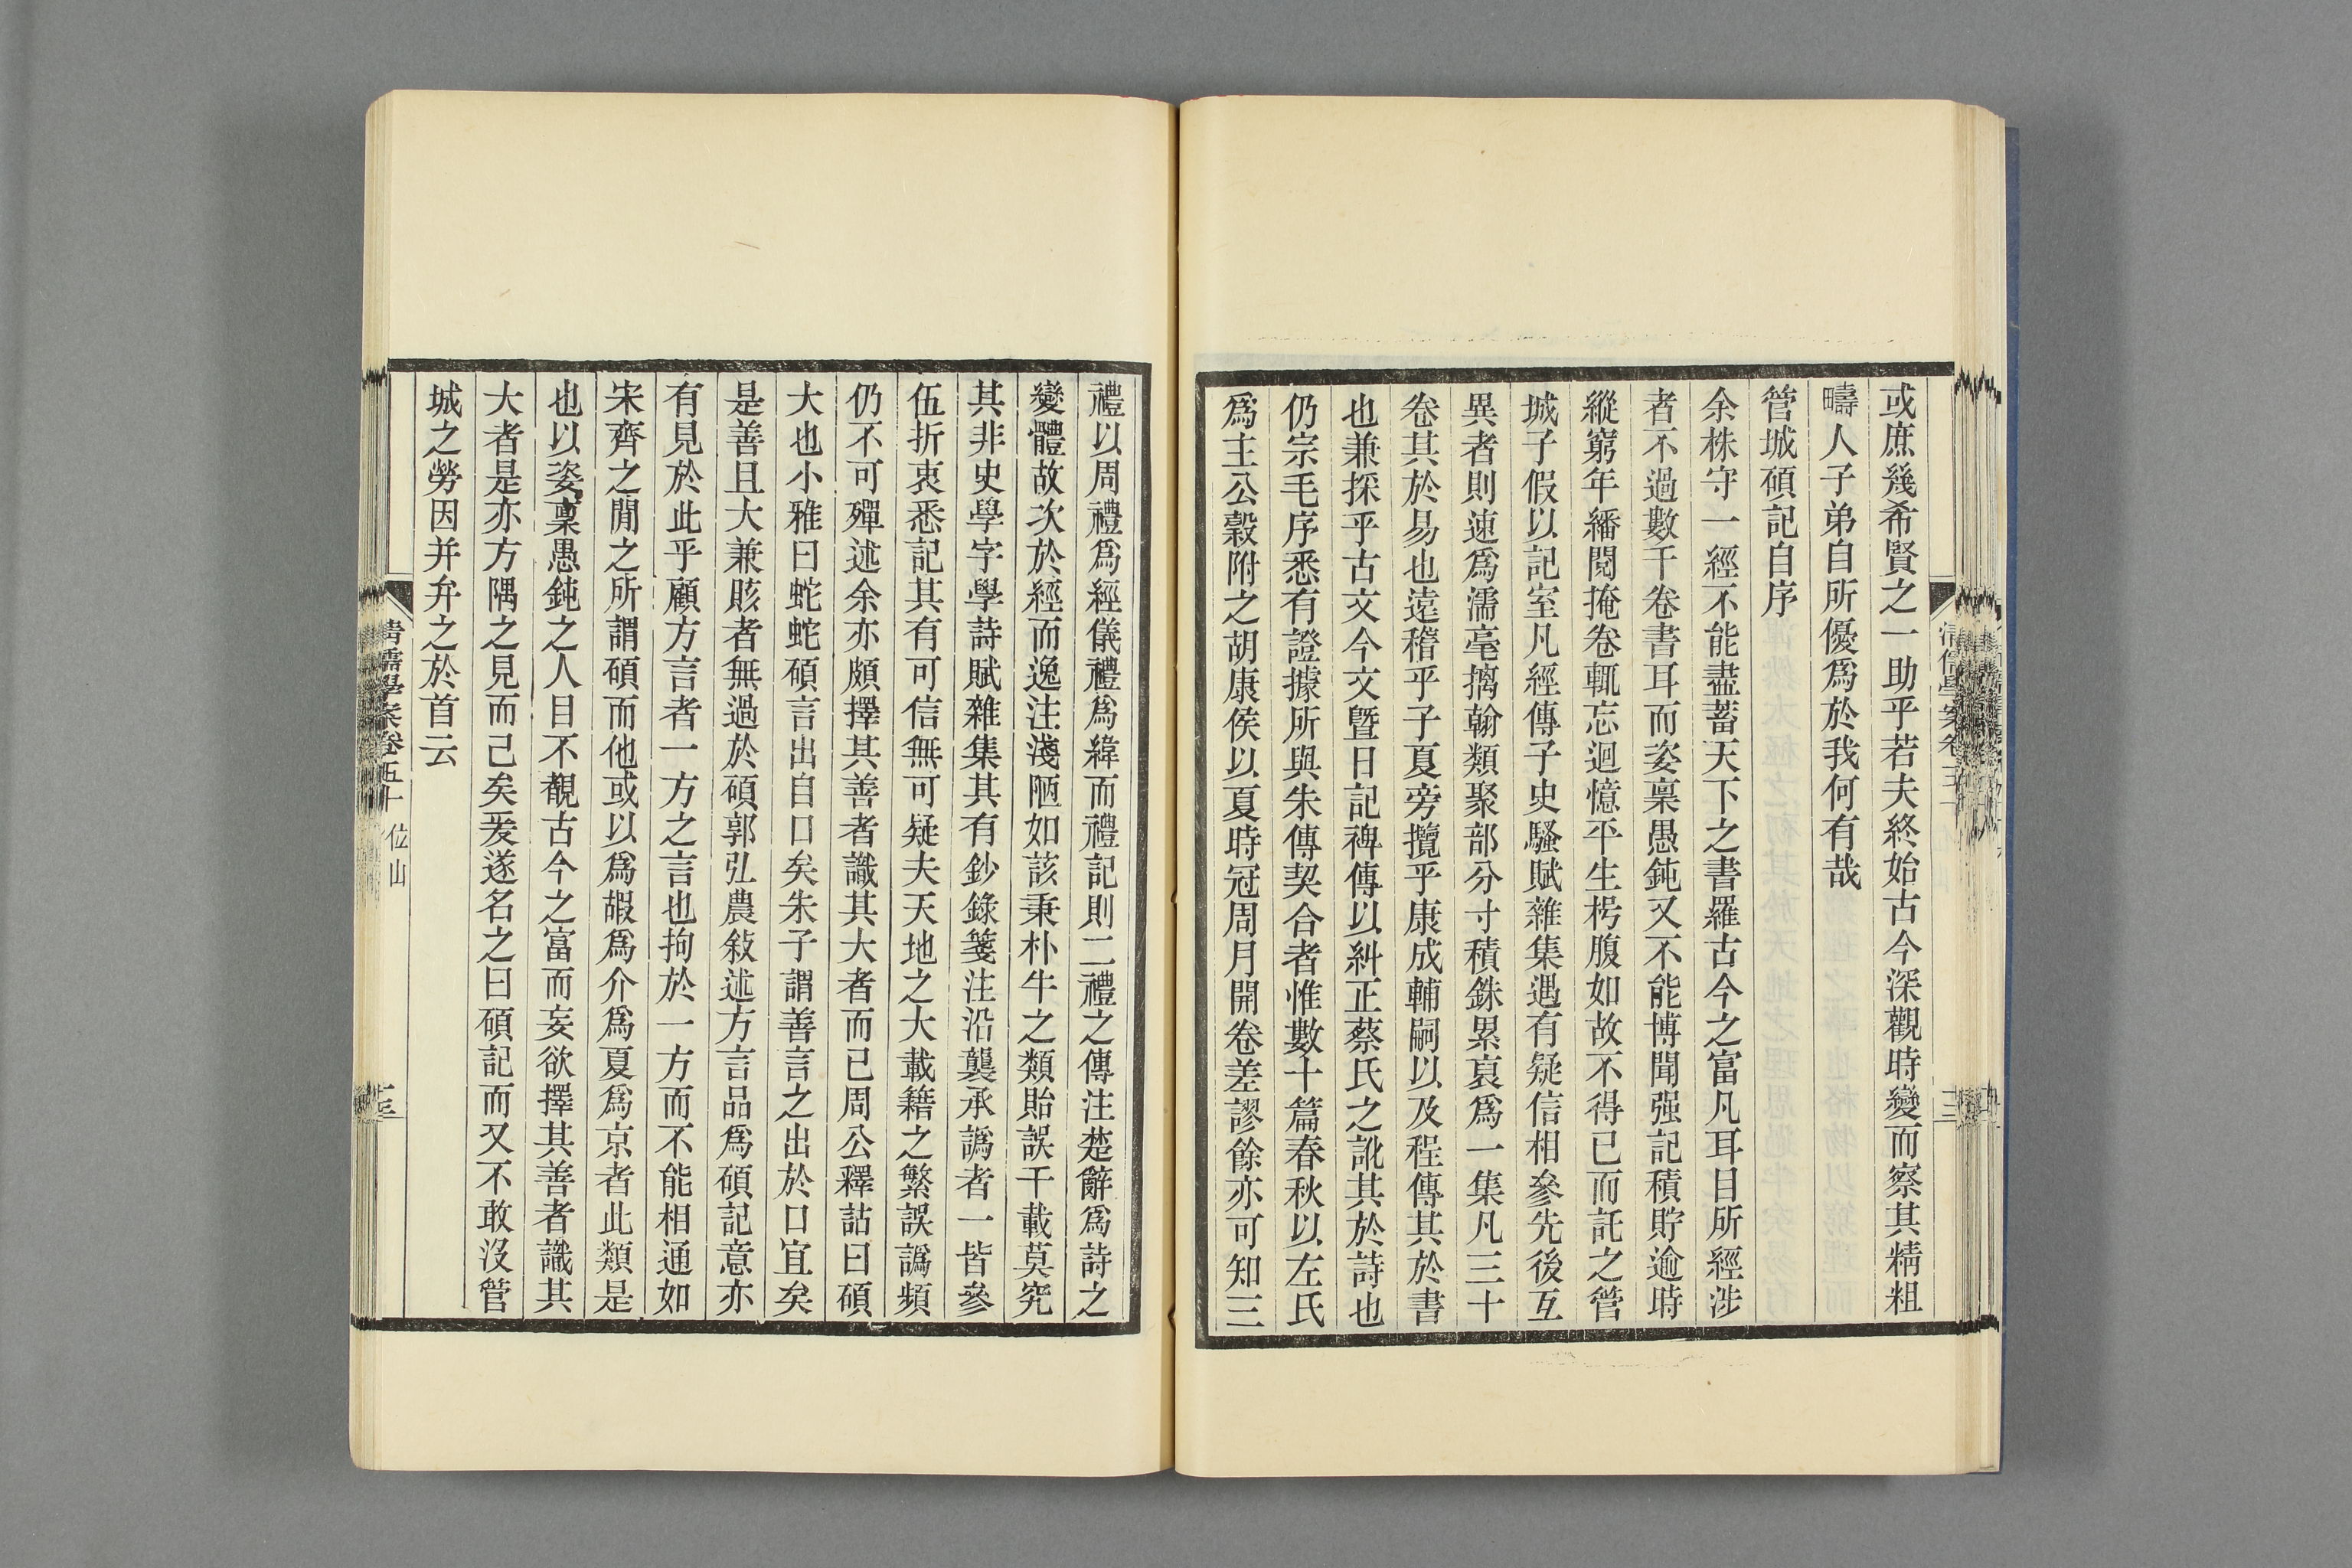 或庶幾希賢之一助乎若夫終始古今深觀時變而察其精粗
疇人子弟自所優爲於我何有哉
管城碩記自序
余株守一經不能盡蓄天下之書羅古今之富凡耳目所經涉
者不過數千卷書耳而姿稟愚鈍又不能博聞强記積貯逾時
縱窮年繙閱掩卷輒忘迴憶平生枵腹如故不得已而託之管
城子假以記室凡經傳子史騷賦雜集遇有疑信相參先後互
異者則速爲濡毫摛翰類聚部分寸積銖累裒爲一集凡三十
卷其於易也遠稽乎子夏旁攬乎康成輔嗣以及程傳其於書
也兼採乎古文今文曁日記禆傳以糾正蔡氏之訛其於詩也
仍宗毛序悉有證據所與朱傳契合者惟數十篇春秋以左氏
爲主公穀附之胡康侯以夏時冠周月開卷差謬餘亦可知三
禮以周禮爲經儀禮爲緯而禮記則二禮之傳注楚辭爲詩之
變體故次於經而逸注淺陋如該秉朴牛之類貽誤千載莫究
其非史學字學詩賦雜集其有鈔錄箋注沿襲承譌者一皆參
伍折衷悉記其有可信無可疑夫天地之大載籍之繁誤譌頻
仍不可殫述余亦頗擇其善者識其大者而已周公釋詁曰碩
大也小雅曰蛇蛇碩言出自口矣朱子謂善言之出於口宜矣
是善且大兼賅者無過於碩郭弘農敍述方言品爲碩記意亦
有見於此乎顧方言者一方之言也拘於一方而不能相通如
宋齊之閒之所謂碩而他或以爲嘏爲介爲夏爲京者此類是
也以姿稟愚鈍之人目不覩古今之富而妄欲擇其善者識其
大者是亦方隅之見而己矣爰遂名之曰碩記而又不敢沒管
城之勞因并弁之於首云
清儒學案卷五十 位山